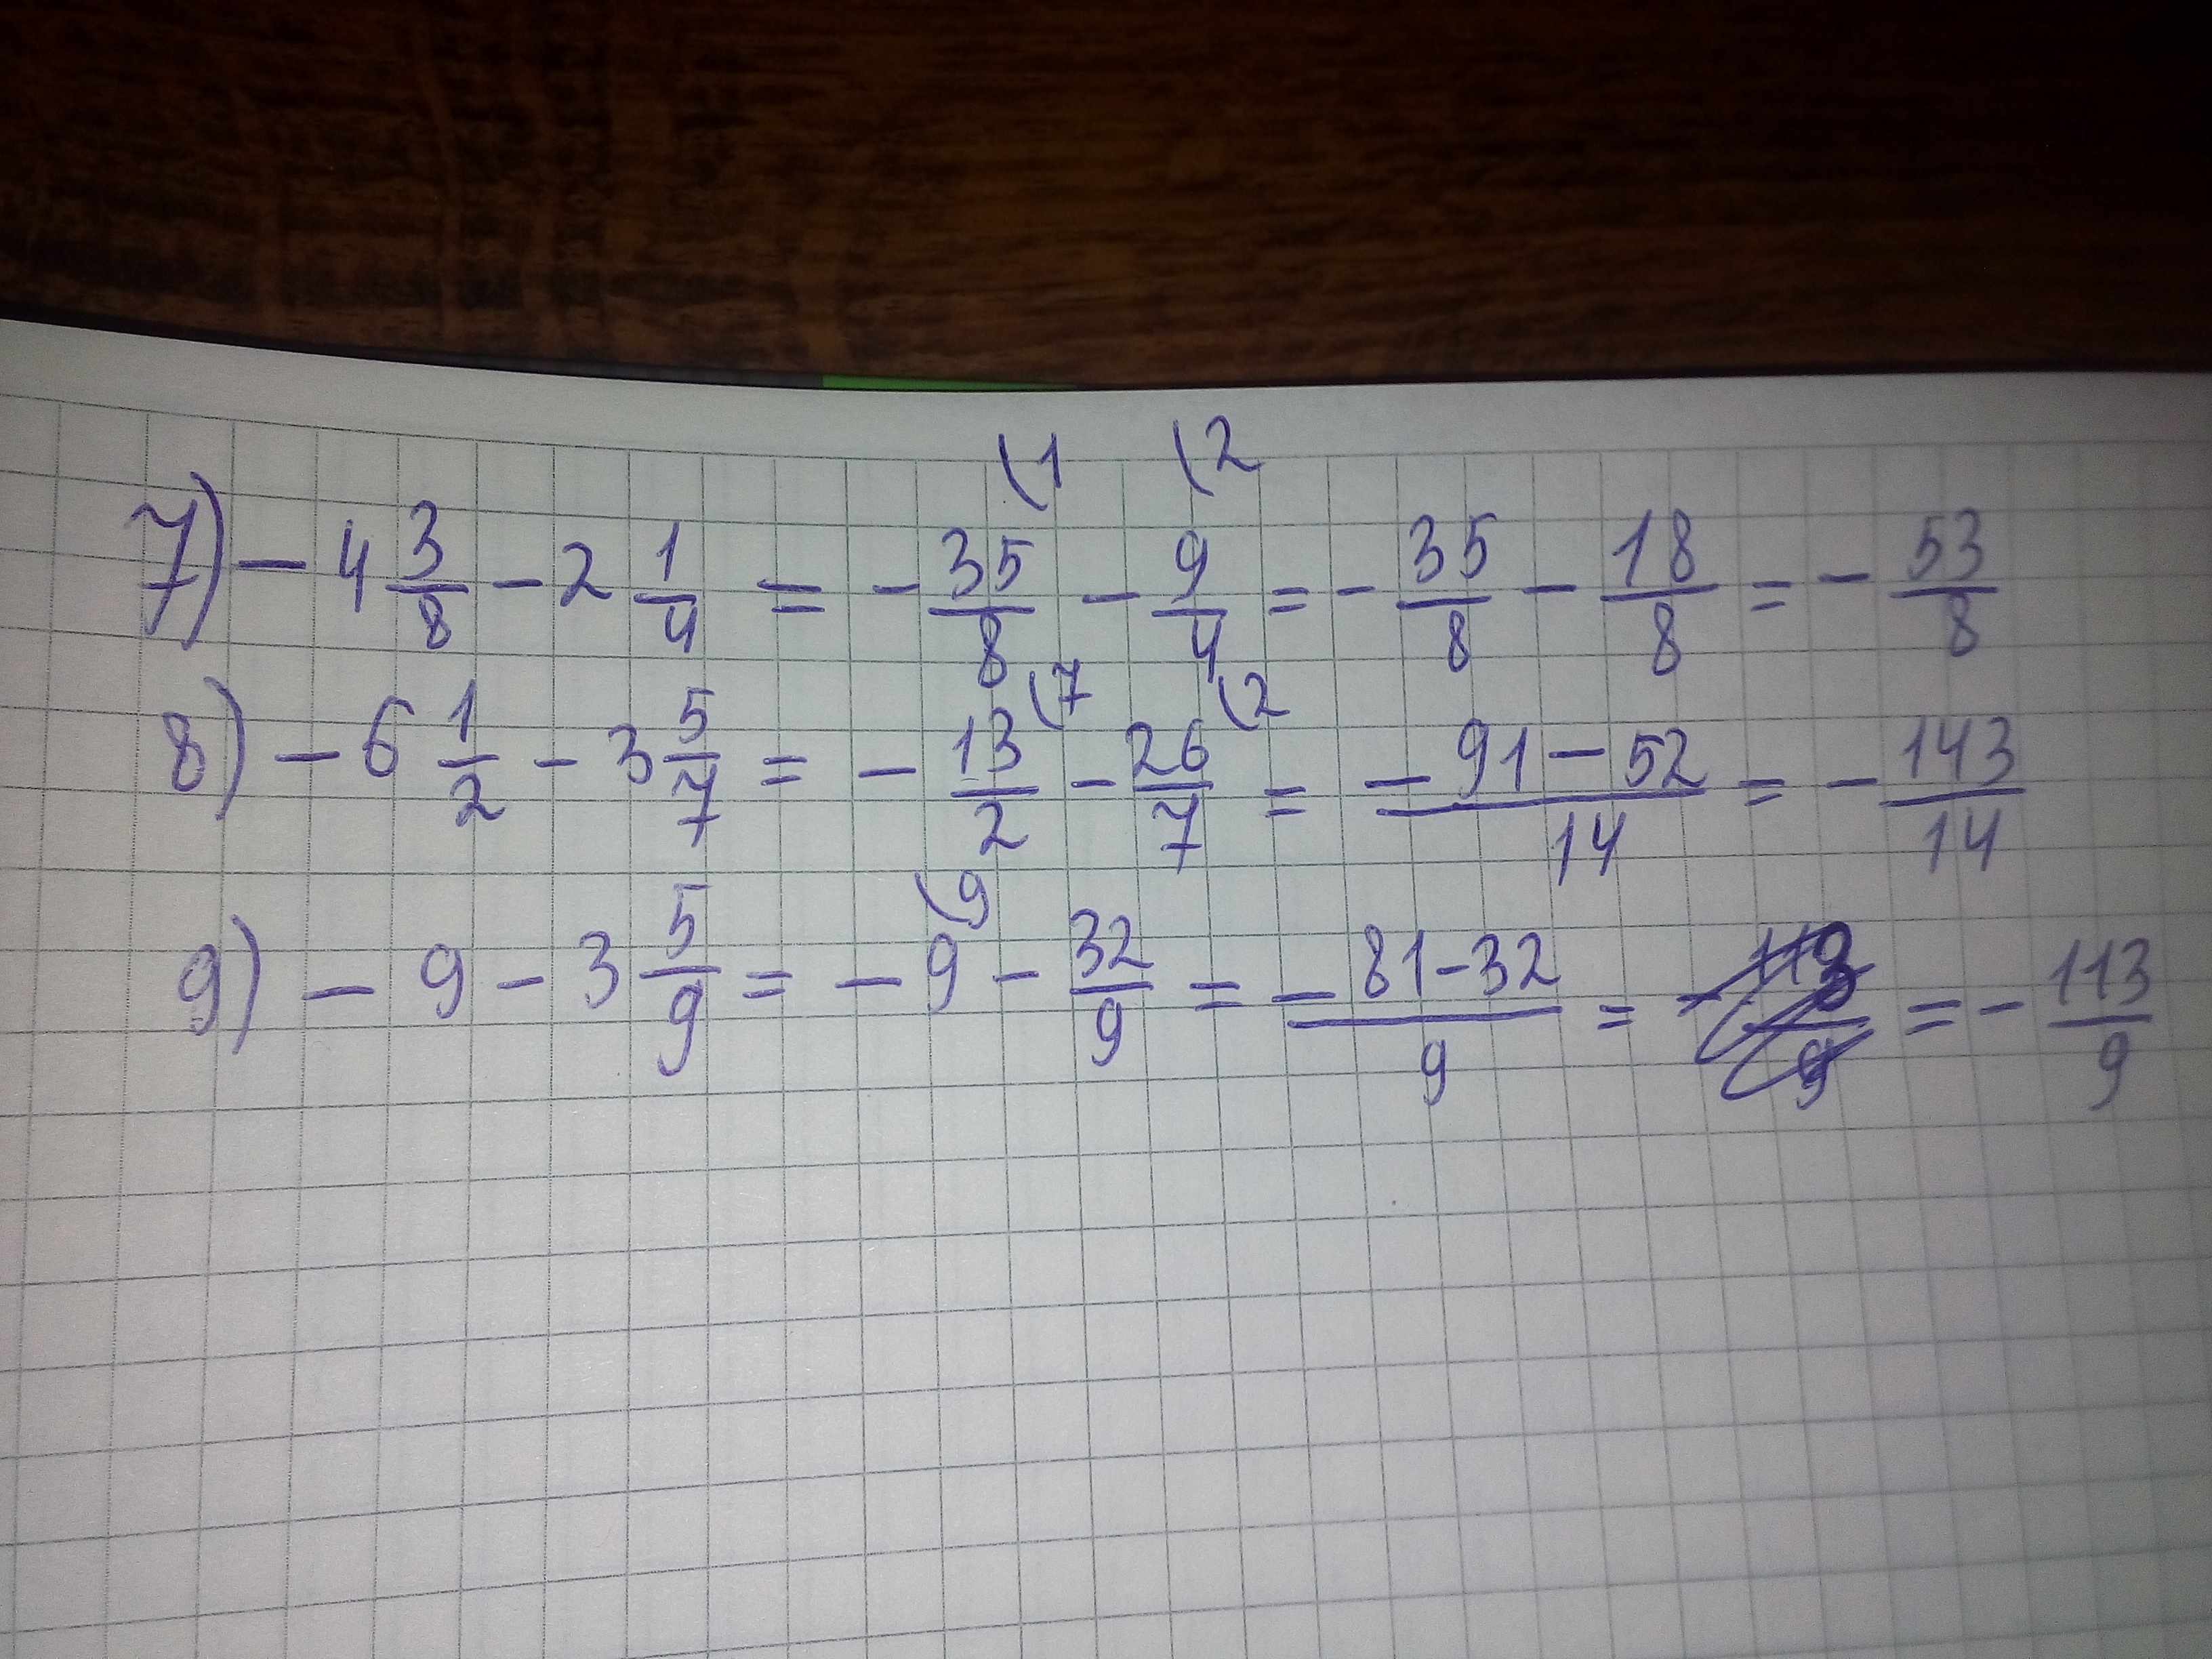 7) - 4 3/8 - 2 1/4 = - 35/8 (1 - 9/4 (2 = - 35/8 - 18/8 = - 53/8
8) - 6 1/2 - 3 5/7 = - 13/2 (7 - 26/7 (2 = - 91 - 52/14 = - 143/14
9) - 9 - 3 5/9 = - 9 (9 - 32/9 = - 81 - 32/9 = = - 113/9